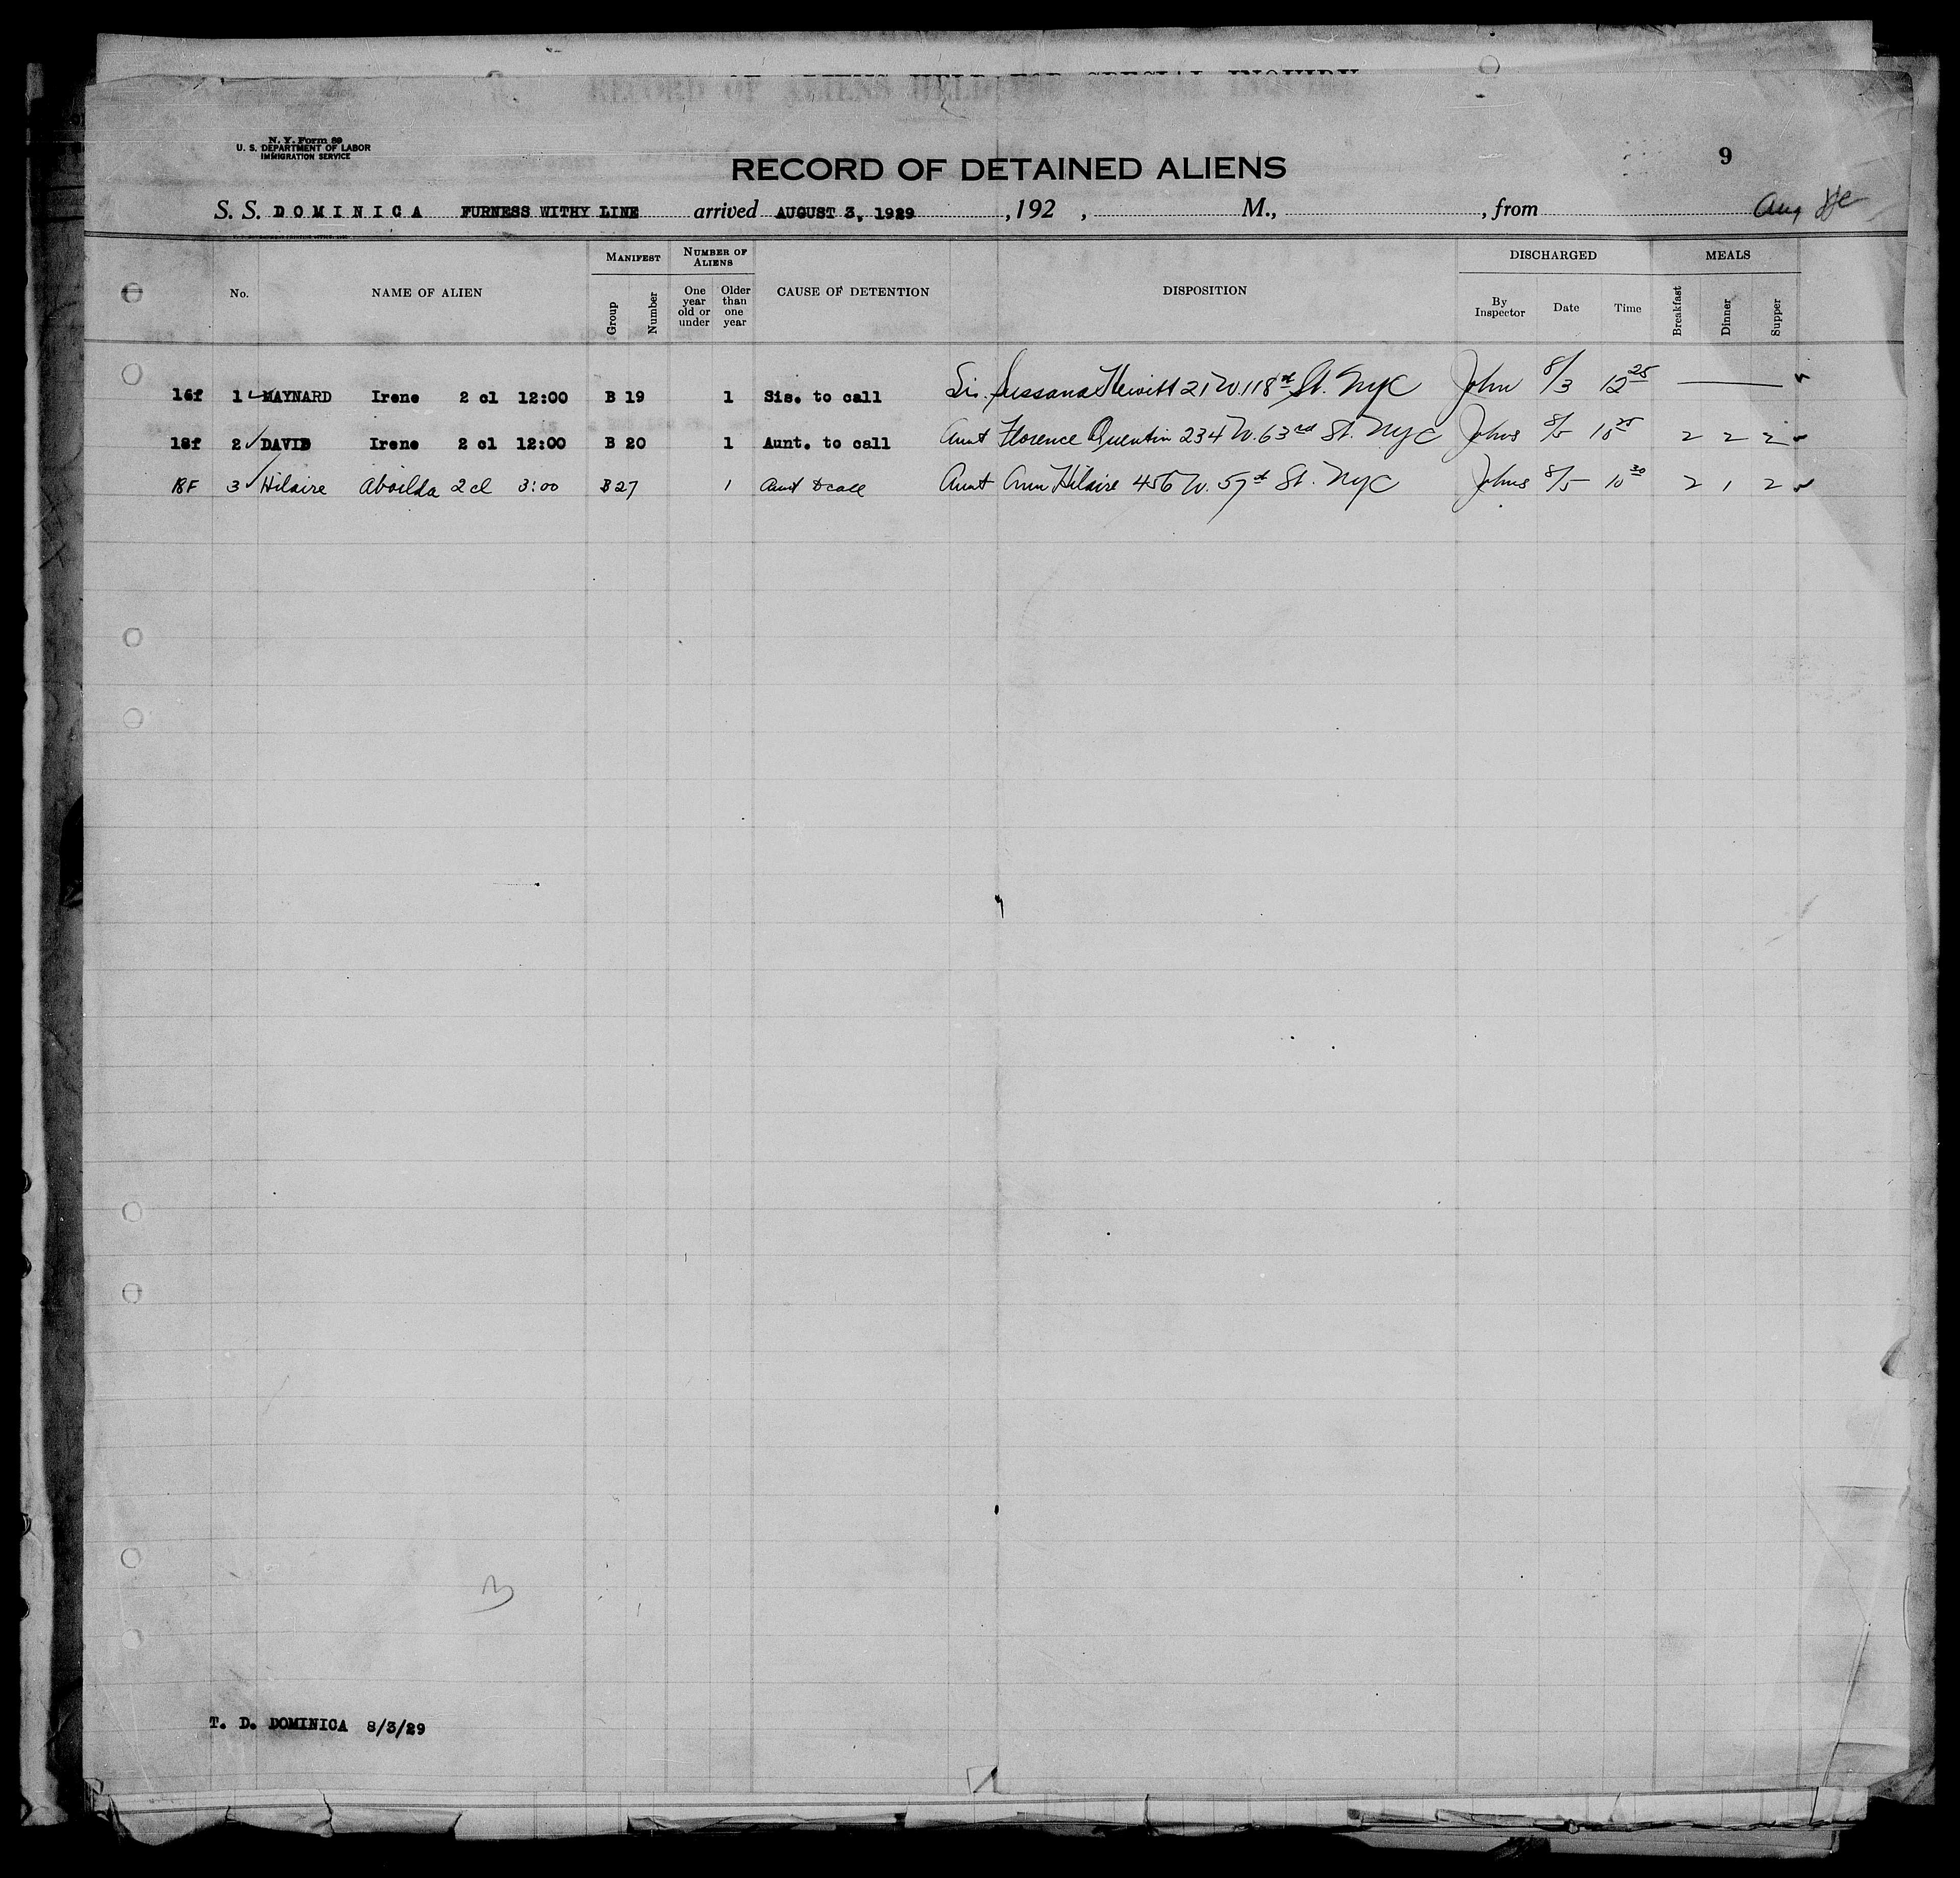 RECORD OF ALIENS HELD FOR SPECIAL INQUIRY
N. Y. Form 89
U. S. DEPARTMENT OF LABOR
IMMIGRATION SERVICE
9
RECORD OF DETAINED ALIENS
S. S. DOMINICA FURNESS WITHY LINE arrived AUGUST 3, 1929, 192 , M., , from Aug
No. NAME OF ALIEN MANIFEST Group Number NUMBER OF ALIENS One year old or under Older than one year CAUSE OF DETENTION DISPOSITION DISCHARGED By Inspector Date Time MEALS Breakfast Dinner Supper
16f 1 MAYNARD Irene 2 cl 12:00 B 19 1 Sis. to call Sis. Sussana Hewitt 21 W. 118 st St. NYC John 8/3 12 25
18f 2 DAVID Irene 2 cl 12:00 B 20 1 Aunt. to call Aunt Florence Quentin 234 W. 63rd St. NYC Johns 8/5 10 25 2 2 2
18F 3 Hilaire 2 cl 3:00 B 27 1 Aunt to call Aunt Ann Hilaire 456 W. 57 st St. NYC Johns 8/5 10 30 2 1 2
3
T. D. DOMINICA 8/3/29